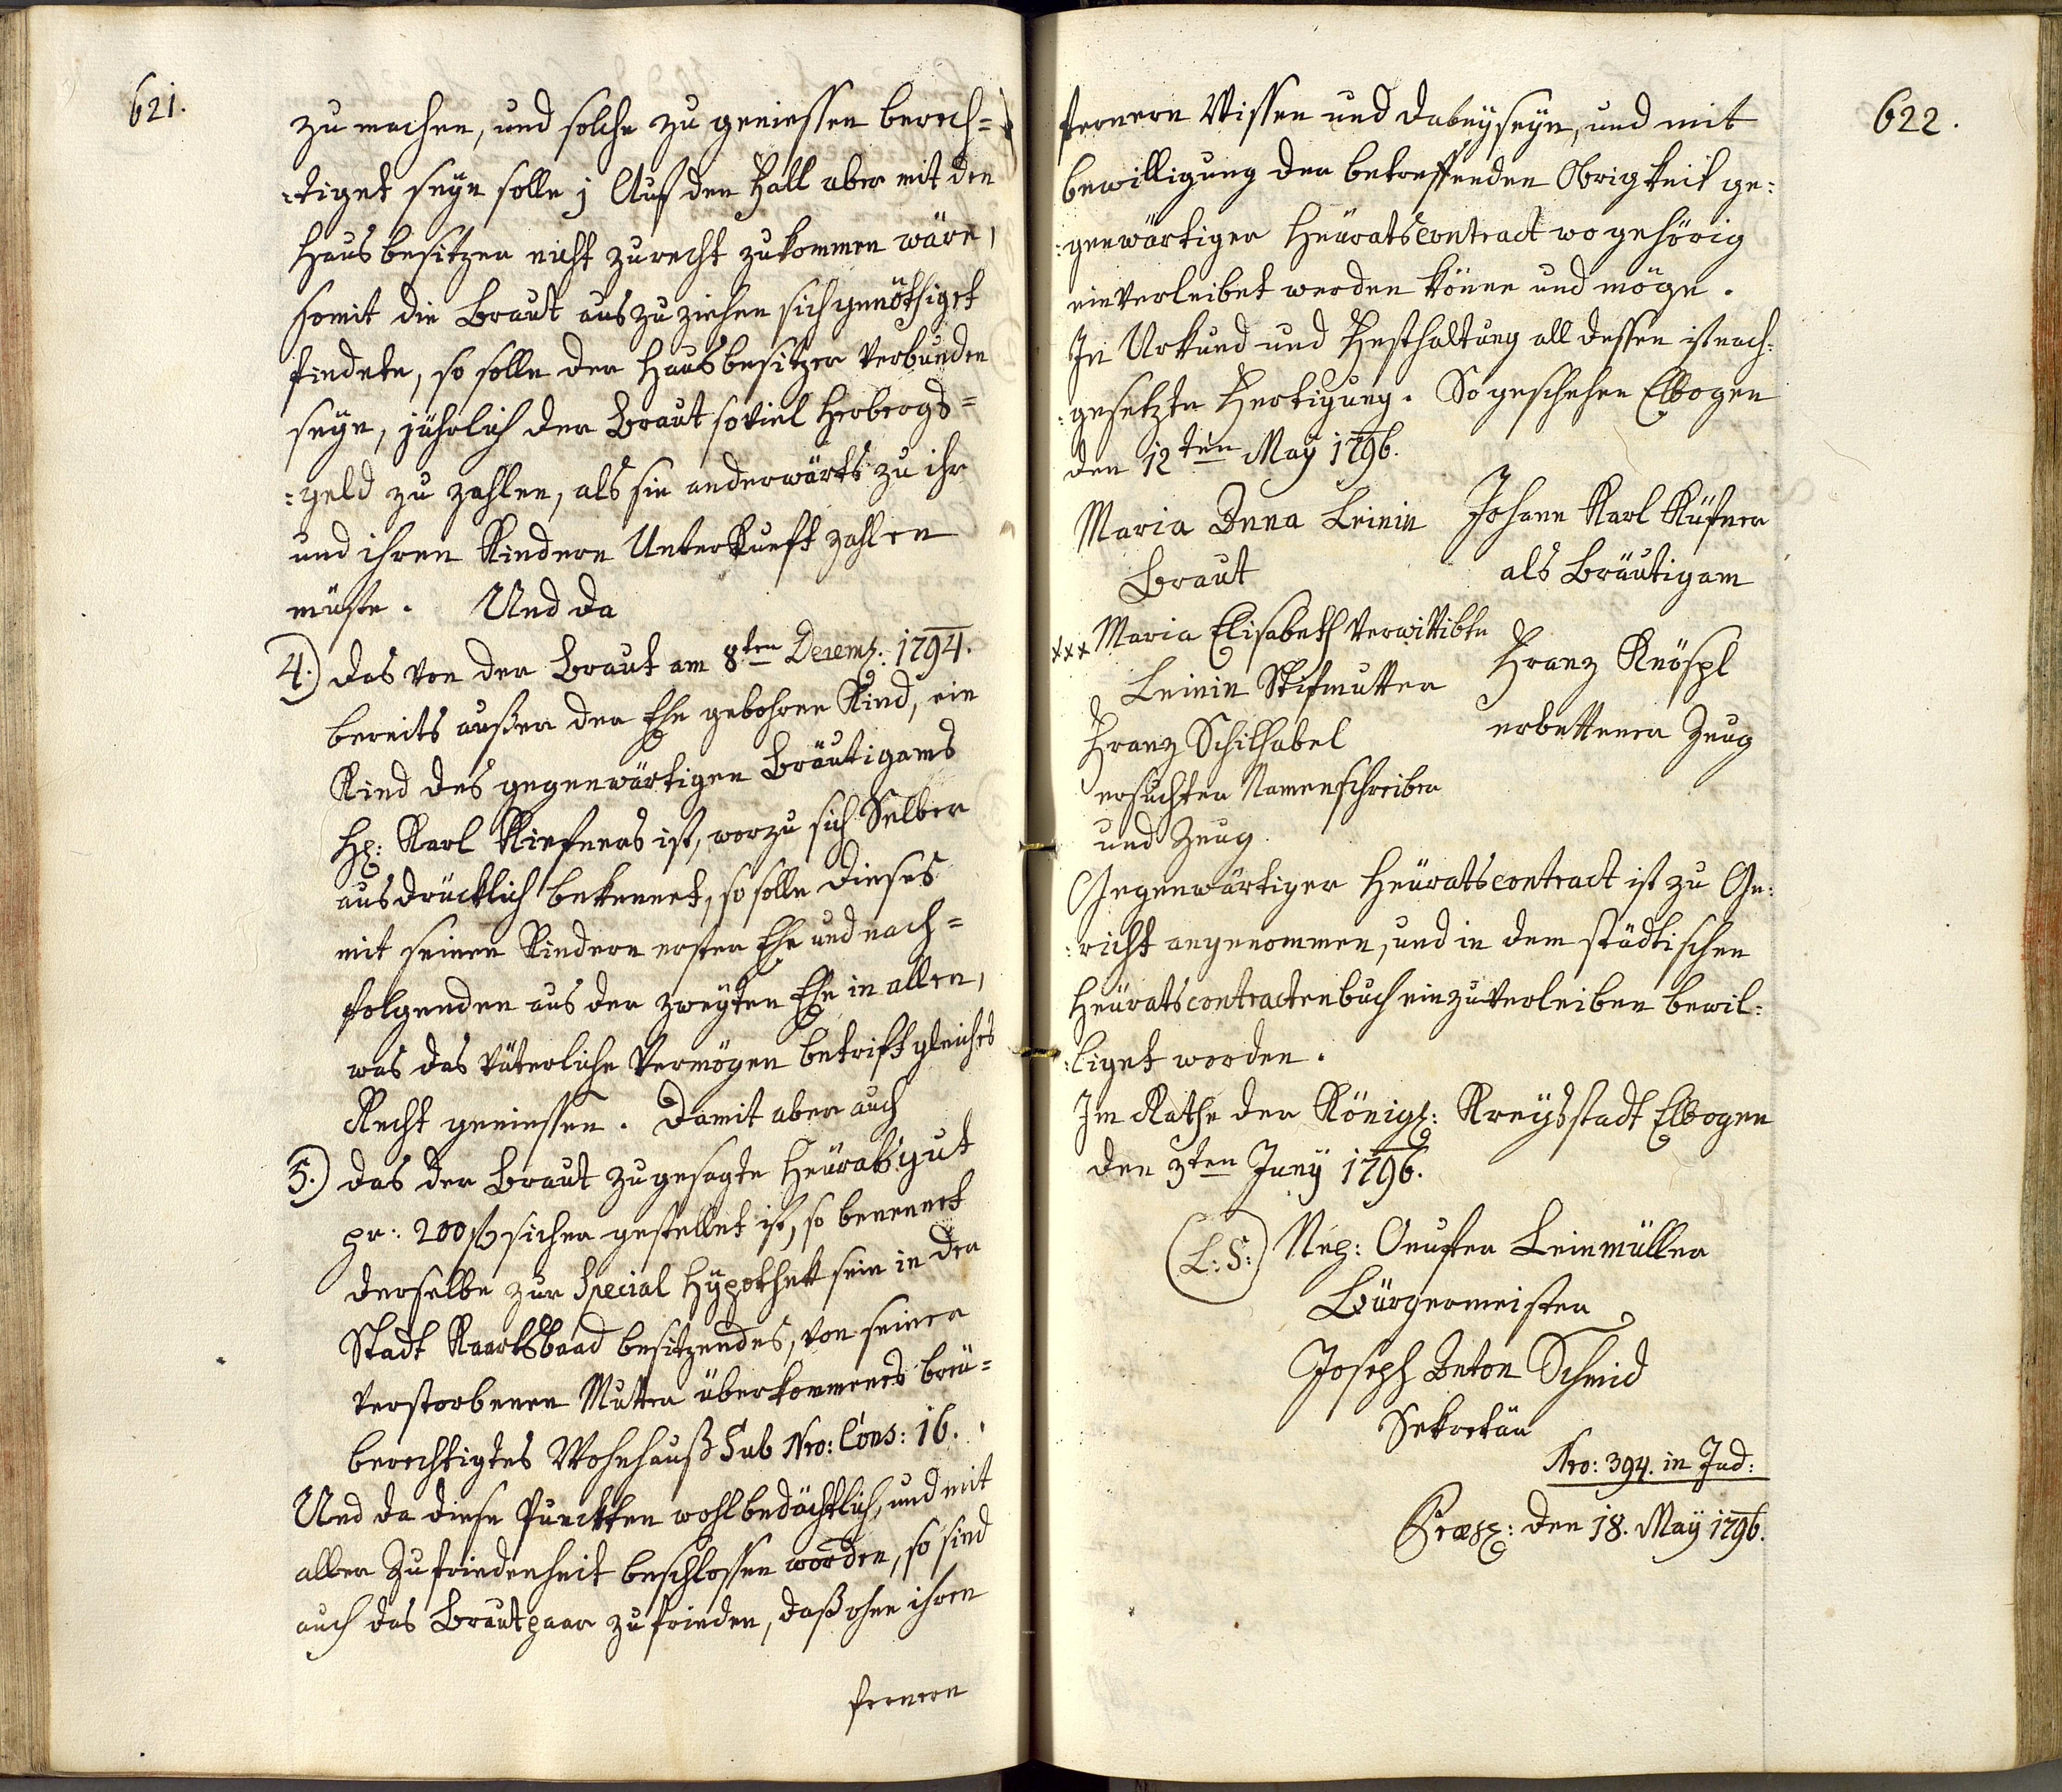 621.
zu machen, und solche zu geniessen berech=
:tiget seyn solle; Auf den Fall aber mit den
Hausbesitzer nicht zurecht zukommen wäre,
somit die Braut auszuziehen sich genöthiget
findete, so solle der Hausbesitzer verbunden
seyn, jährlich der Braut soviel Herbergs=
:geld zu zahlen, als sie anderwärts zu ihr
und ihren Kindern Unterkunft zahlen
müste. Und da
4.) das von der Braut am 8ten Decemb: 1794.
bereits außer der Ehe gebohrne Kind, ein
Kind des gegenwärtigen Bräutigams
H: Karl Kiefners ist, worzu sich Selber
ausdrücklich bekennet, so solle dieses
mit seinen Kindern erster Ehe und nach=
folgenden aus der zweyten Ehe in allen,
was das väterliche Vermögen betrift gleiches
Recht geniessen. Damit aber auch
5.) das der Braut zugesagte Heüratsgut
pr: 200 f sicher gestellet ist, so benennet
derselbe zur Special Hypothek sein in der
Stadt Kaarlsbaad besitzendes, von seiner
verstorbenen Mutter überkommenes breü=
berechtigtes Wohnhauß Sub Nro: Cons: 16.
Und da diese Puncten wohlbedächtlich, und mit
aller Zufriedenheit beschlossen worden, so sind
auch das Brautpaar zufrieden, daß ohne ihren
fernern
622.
fernern Wissen und dabeyseyn, und mit
bewilligung der betreffenden Obrigkeit ge:
:genwärtiger Heüratscontract wo gehörig
einverleibet werden könne und möge.
In Urkund und Festhaltung all dessen ist nach:
:gesetzte Fertigung. So geschehen Elbogen
den 12ten May 1796.
Maria Anna Leinin Johann Karl Küfner
Braut als Bräutigam
xxx Maria Elisabeth verwittibte
Leinin Stifmutter Franz Knöspl
Franz Schilhabel erbettener Zeug
ersuchter Namenschreiber
und Zeug
Gegenwärtiger Heüratscontract ist zu Ge:
:richt angenommen, und in dem städtischen
Heüratscontractenbuch einzuverleiben bewil:
:liget worden.
Im Rathe der Königl: Kreysstadt Elbogen
den 3ten Juny 1796.
(L:S:) Nep: Leinmüller
Bürgermeister
Joseph Anton Schmid
Sekretär
Nro: 394. in Jud:
Præs: den 18. May 1796.